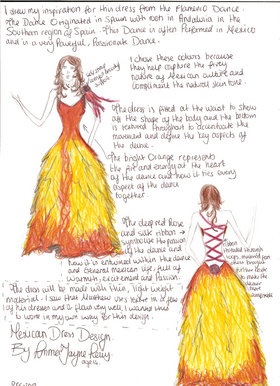 I drew my inspiration for this dress from the Flamenco Dance.
The Dance Originated in Spain with roots in Andalucia in the
Southern region of Spain. This Dance is often Performed in Mexico
and is a very Powerful, Passionate Dance.
I chose these colours because
they help capture the firey
nature of Mexican culture and
compliment the natural skin tone.
The dress is fitted at the waist to show
off the shape of the body and the bottom
is textured throughout to accentuate the
movement and define the key aspects of
the dance.
The bright Orange represents
the fire and energy at the heart
of the dance and how it ties every
aspect of the dance
together.
The deep red Rose
and silk ribbon
symbolise the passion
of the dance and
how it is entwined within the dance
and General Mexican life, full of
warmth, excitement and Passion.
ribbon
threaded through
The dress will be made with thin, light weight
material. I saw that Matthew uses texture in a few
of his dresses and it flows very well, I wanted this
to work in my own way for this design.
Mexican Dress Design
By Jayne Kelly